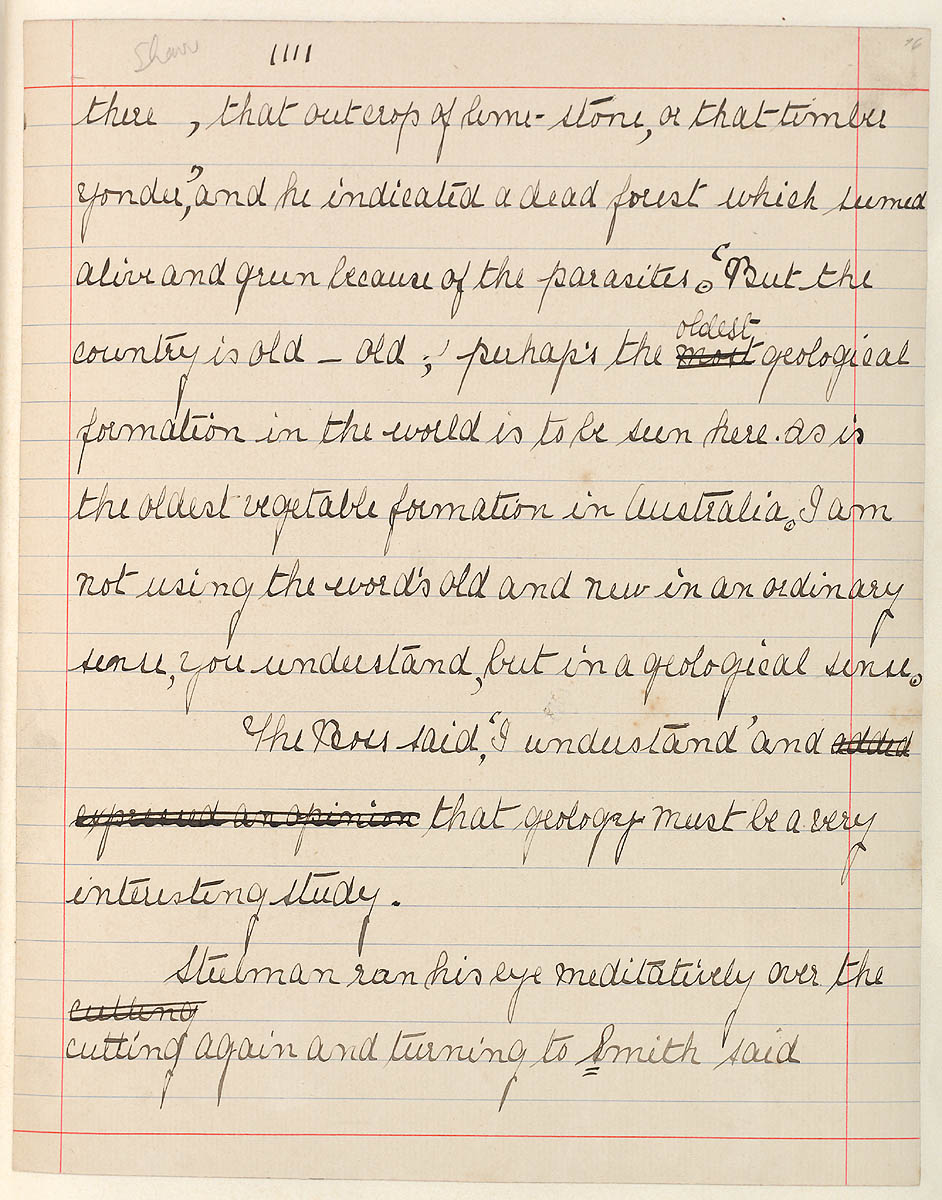 Shaw 1111 76
there , that outcrop of lime-stone, or that timber
yonder," and he indicated a dead forest which seemed
alive and green because of the parasites. "But the
country is old — old ; perhap's the most oldest geological
formation in the world is to be seen here. as is
the oldest vegetable formation in Australia. I am
not using the word's old and new in an ordinary
sense, you understand, but in a geological sense.
The Boss said, "I understand" and added
expressed an opinion that geology must be a very
interesting study.
Steelman ran his eye meditatively over the
cutting
cutting again and turning to Smith said